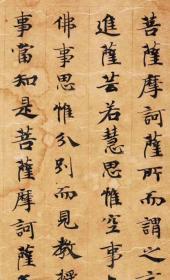 菩薩摩訶薩所而謂之言
進薩芸若慧思惟空事
佛事思惟分別而見教授
事當知是菩薩摩訶薩